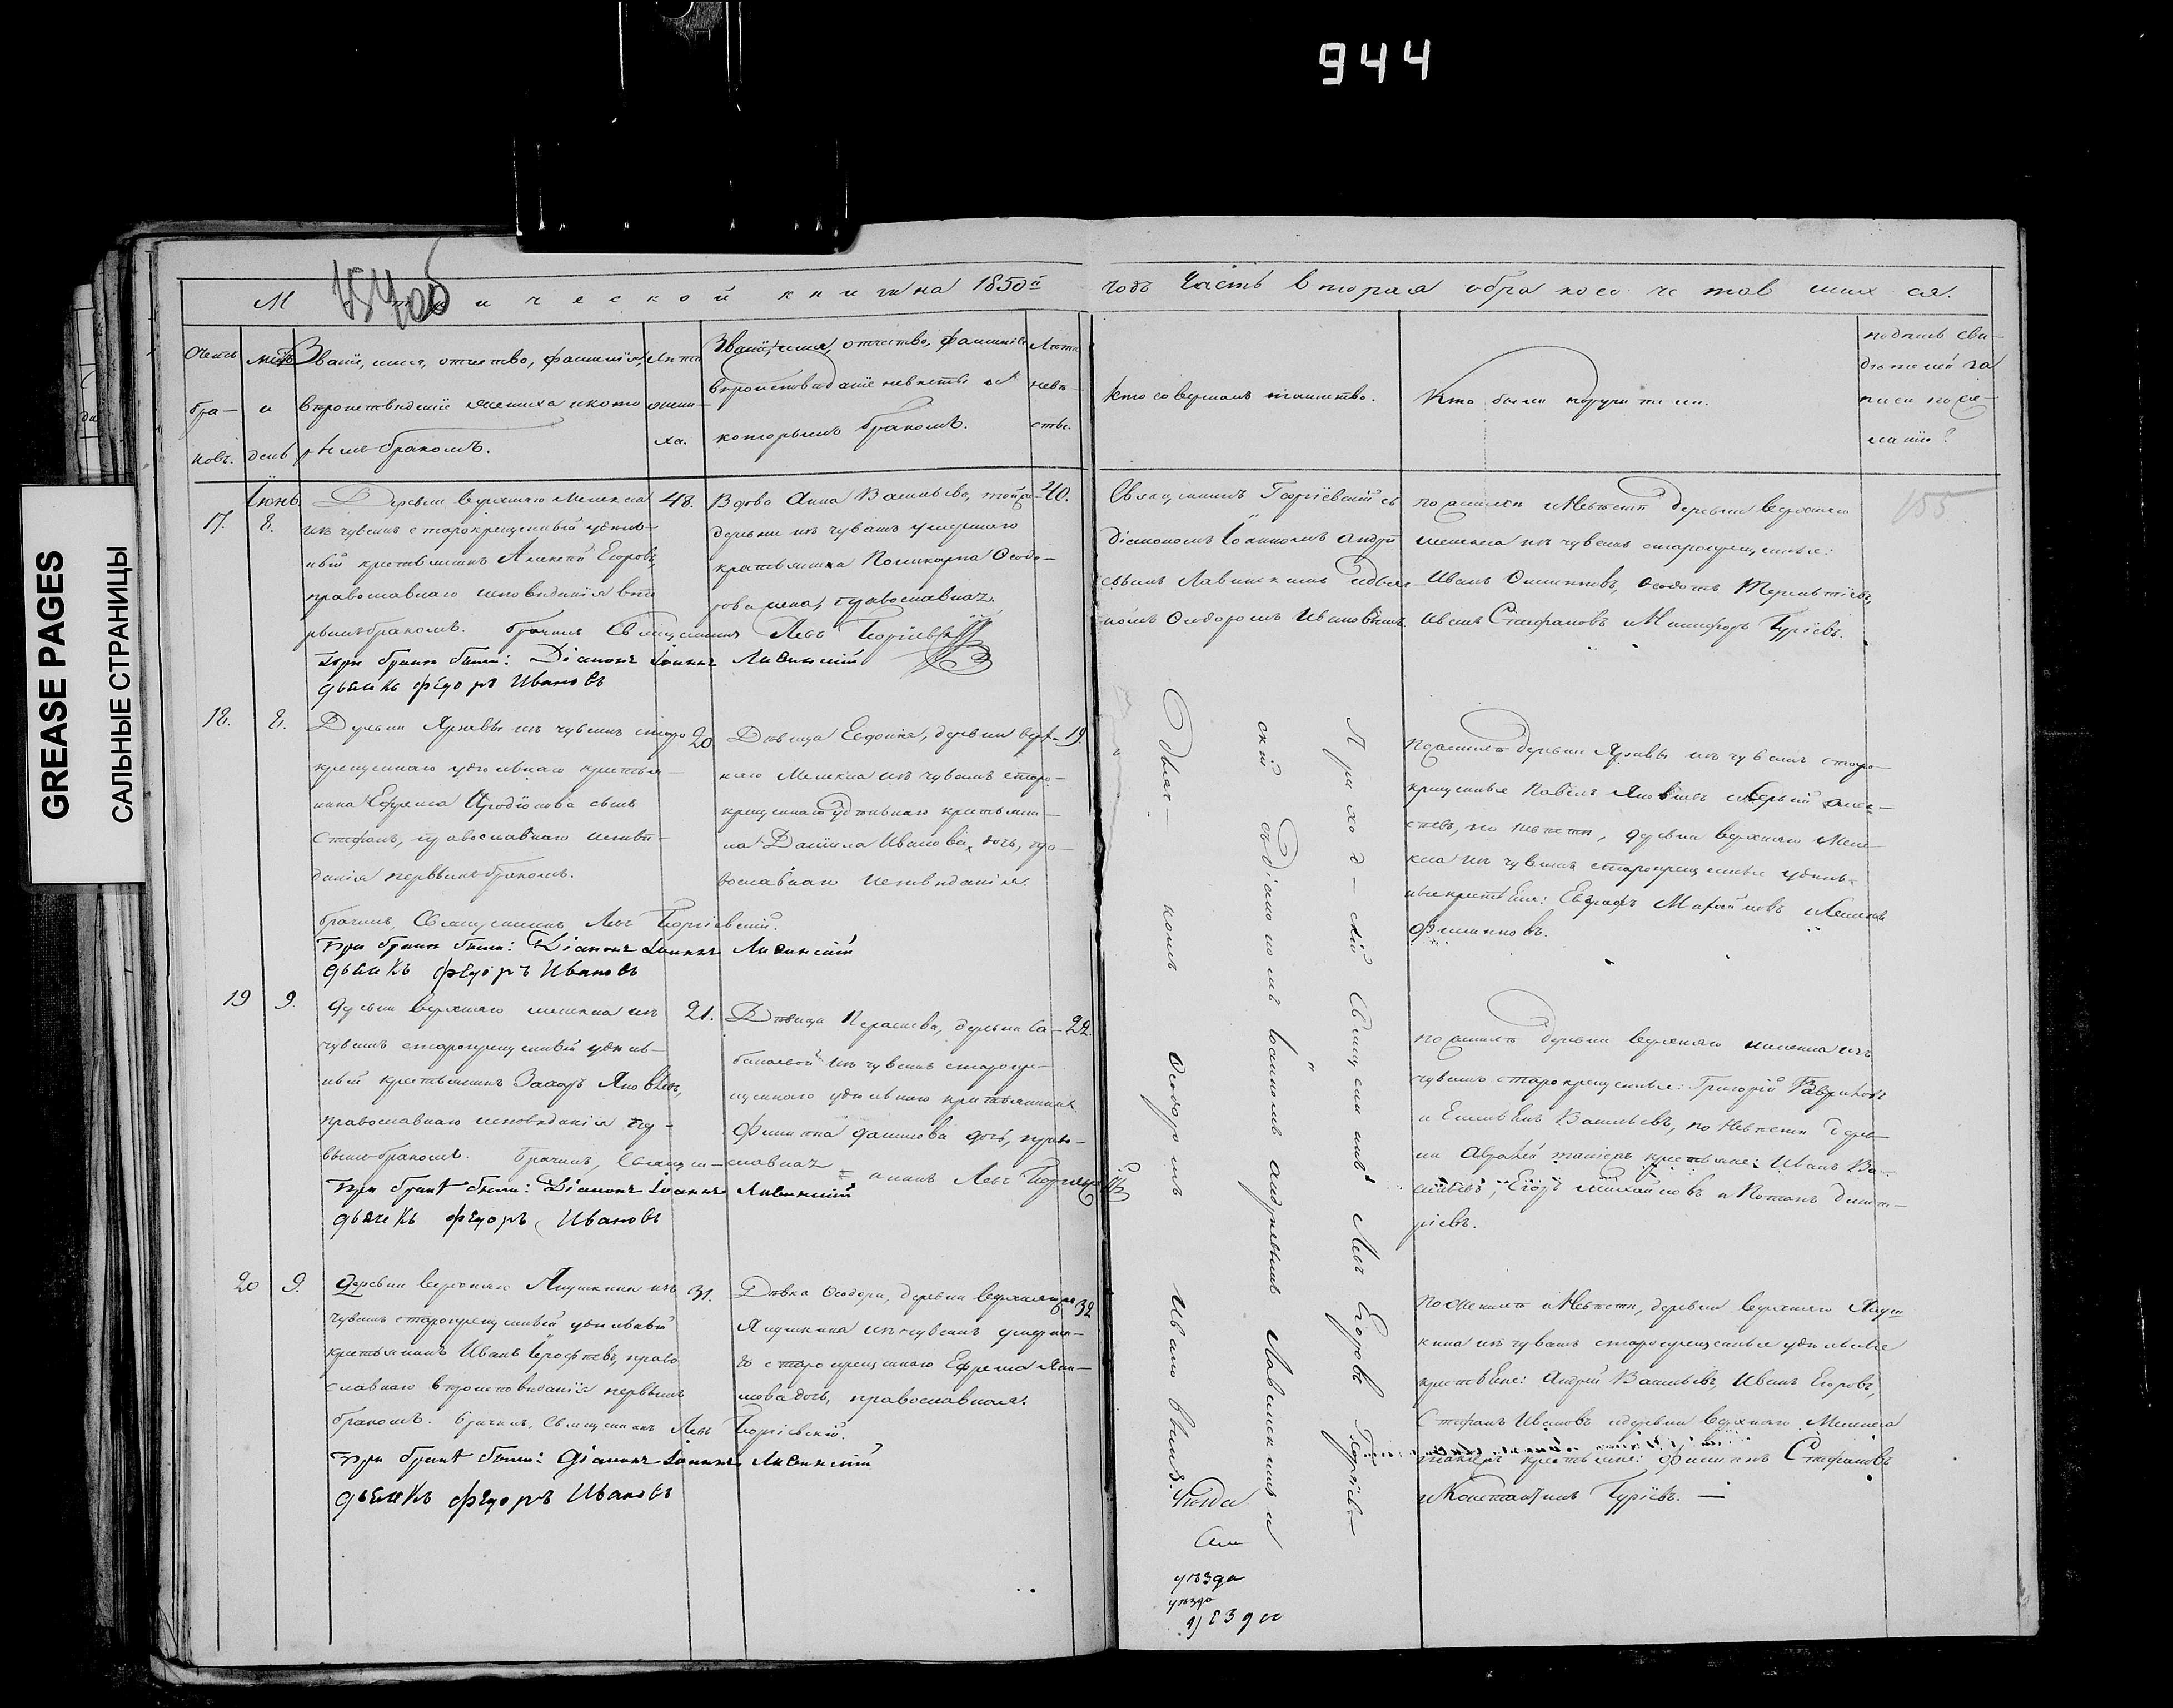 944
GREASE PAGES
САЛЬНЫЕ СТРАНИЦЫ
154 об
Метрической книги на 1850й
годъ Часть вторая о бракосочетавшихся.
Счетъ браковъ.
Мѣсяцъ и день
Званіе, имя, отчество, фамилія,
вѣроисповѣданіе жениха и кото
рымъ бракомъ.
Лѣта
жени-
ха.
Званіе, имя, отчество, фамилія
вѣроисповѣданіе невѣсты и
которымъ бракомъ.
Лѣта
невѣ-
сты.
Кто совершалъ таинство.
Кто были поручители.
подпись сви-
дѣтелей за
писи по же-
ланію?
155
Іюнь
17.
8.
Деревни верхняго мелекеса
изъ чувашъ старокрещенный удѣль-
ный крестьянинъ Алексѣй Егоровъ,
православнаго исповѣданія вто
рымъ бракомъ. Брачилъ Священникъ Левъ Георгіевскій
При бракѣ были: Діаконъ Іоаннъ Лавинскій
дьячекъ Федоръ Ивановъ
48.
Вдова Анна Васильева, той же
деревни изъ чувашъ умершаго
крестьянина Поликарпа Ѳеодо-
рова жена, православная.
40.
Священникъ Георгіевскій съ
діакономъ Іоанномъ Андре
евымъ Лавинскимъ и дьяч-
комъ Ѳеодоромъ Ивановымъ.
по женихѣ и невѣстѣ деревни верхняго
мелекеса изъ чувашъ старокрещенные:
Иванъ Филиповъ, Ѳедотъ Терентьевъ,
Иванъ Стефановъ и Никифоръ Гурьевъ.
18.
8.
Деревни Аркаевы изъ чувашъ старо
крещеннаго удѣльнаго крестья-
нина Ефрема Иродіонова сынъ
Стефанъ, православнаго исповѣ-
данія первымъ бракомъ.
Брачилъ Священникъ Левъ Георгіевскій.
При бракѣ были: Діаконъ Іоаннъ Лавинскій
дьячекъ Федоръ Ивановъ
20
Дѣвица Евдокія, деревни верх-
няго Мелекеса изъ чувашъ старо-
крещеннаго удѣльнаго крестьяни-
на Даніила Иванова дочь, пра-
вославнаго исповѣданія.
19.
Приход-скій Священникъ Левъ Егоровъ Георгіев
скій съ Діакономъ Іоанномъ Андреевымъ Лавинскимъ и
дьяч-комъ Ѳеодоромъ Ивановымъ.
19
9.
Деревни верхняго мелекеса изъ
чувашъ старокрещенный удѣль-
ный крестьянинъ Захаръ Яковлевъ,
православнаго исповѣданія пер-
вымъ бракомъ. Брачилъ, Священ-
никъ Левъ Георгіевскій
При бракѣ были: Діаконъ Іоаннъ Лавинскій
дьячекъ Федоръ Ивановъ
21.
22.
по женихѣ деревни верхняго мелекеса изъ
чувашъ старокрещенные: Григорій Гавриловъ
и Емельянъ Васильевъ, по невѣстѣ дерев-
Иванъ Ва-
сильевъ, Егоръ Михайловъ и Романъ Дмит-
ріевъ.
20
9.
Деревни верхняго Якушкина изъ
чувашъ старокрещенный удѣльный
крестьянинъ Иванъ Ерофѣевъ, право
славнаго вѣроисповѣданія первымъ
бракомъ. Брачилъ, Священникъ Левъ Георгіевскій.
При бракѣ были: Діаконъ Іоаннъ Лавинскій
дьячекъ Федоръ Ивановъ
31.
Дѣвка Ѳеодора, деревни верхняго
Якушкина изъ чувашъ умерша-
го старокрещеннаго Ефрема Яки-
мова дочь, православная.
32
По женихѣ и невѣстѣ, деревни верхняго Якуш
кина изъ чувашъ старокрещенные удѣльные
крестьяне: Андрей Васильевъ, Иванъ Егоровъ,
Стефанъ Ивановъ и деревни верхняго Мелекеса
крестьяне: Филиппъ Стефановъ
и Константинъ Гурьевъ. —
уѣзда
уѣзда
уѣзда